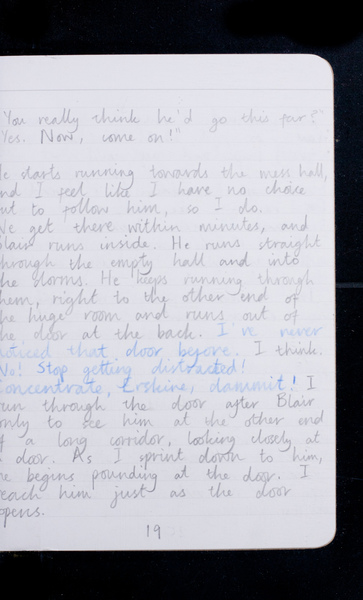 "You really think he'd go this far?"
"Yes. Now, come on!"
He starts running towards the mess hall,
and I feel like I have no choice
but to follow him, so I do.
We get there within minutes, and
Blair runs inside. He runs straight
through the empty hall and into
the dorms. He keeps running through
them, right to the other end of
the huge room and runs out of
the door at the back. I've never
noticed that door before. I think.
No! Stop getting distracted!
Concentrate, Erskine, dammit! I
run through the door after Blair
only to see him at the other end
of a long corridor, looking closely at
a door. As I sprint down to him,
he begins pounding at the door. I
reach him just as the door
opens.
19